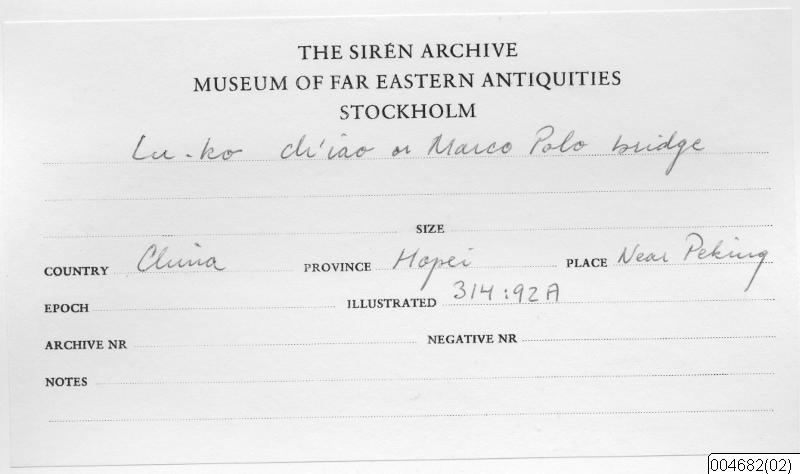 THE SIRÉN ARCHIVE
MUSEUM OF FAR EASTERN ANTIQUITIES
STOCKHOLM
Lu-ko ch'iao or Marco Polo bridge
SIZE
COUNTRY China PROVINCE Hopei PLACE Near Peking
EPOCH ILLUSTRATED 314:92A
ARCHIVE NR NEGATIVE NR
NOTES
004682(02)